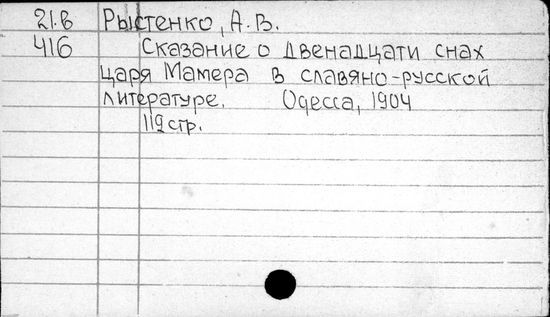 21.в Рыстенко, А.В.
416 Сказание о двенадцати снах
царя Мамера в славяно-русской
литературе. Одесса, 1904
119 стр.